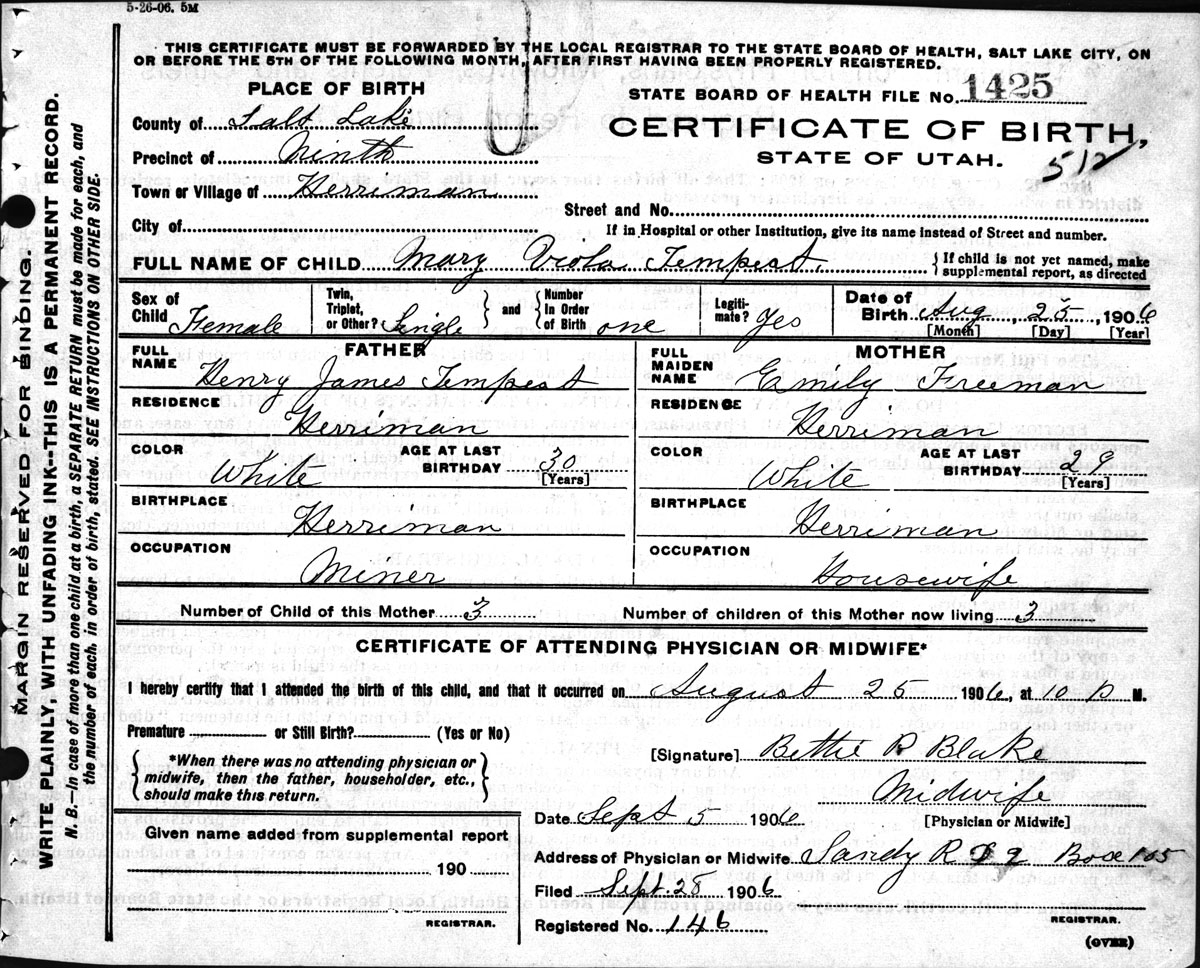 5-26-06. 5M
THIS CERTIFICATE MUST BE FORWARDED BY THE LOCAL REGISTRAR TO THE STATE BOARD OF HEALTH, SALT LAKE CITY, ON
OR BEFORE THE 5TH OF THE FOLLOWING MONTH, AFTER FIRST HAVING BEEN PROPERLY REGISTERED.
PLACE OF BIRTH
STATE BOARD OF HEALTH FILE No. 1425
County of Salt Lake
CERTIFICATE OF BIRTH,
Precinct of Ninth
STATE OF UTAH.
512
Town or Village of Herriman
Street and No.
City of
If in Hospital or other Institution, give its name instead of Street and number.
FULL NAME OF CHILD Mary Viola Tempest.
If child is not yet named, make
supplemental report, as directed
Sex of Child Female
Twin, Triplet, or Other? Single
and
Number In Order of Birth one
Legiti-mate? Yes
Date of Birth Aug, 25, 1906
[Month] [Day] [Year]
FATHER
FULL NAME Henry James Tempest
RESIDENCE
Herriman
COLOR White
AGE AT LAST BIRTHDAY 30
[Years]
BIRTHPLACE
Herriman
OCCUPATION
Miner
MOTHER
FULL MAIDEN NAME Emily Freeman
RESIDENCE
Herriman
COLOR White
AGE AT LAST BIRTHDAY 29
[Years]
BIRTHPLACE
Herriman
OCCUPATION
Housewife
Number of Child of this Mother 3
Number of children of this Mother now living 3
CERTIFICATE OF ATTENDING PHYSICIAN OR MIDWIFE*
I hereby certify that I attended the birth of this child, and that it occurred on August 25 1906, at 10 P M.
Premature or Still Birth? (Yes or No)
*When there was no attending physician or
midwife, then the father, householder, etc.,
should make this return.
[Signature] Bettie R Blake
Midwife
[Physician or Midwife]
Date Sept 5 1906
Given name added from supplemental report
190
REGISTRAR.
Address of Physician or Midwife Sandy R 9 Box 165
Filed Sept. 28 1906
REGISTRAR.
Registered No. 146
(OVER)
MARGIN RESERVED FOR BINDING.
WRITE PLAINLY, WITH UNFADING INK--THIS IS A PERMANENT RECORD.
N. B.—In case of more than one child at a birth, a SEPARATE RETURN must be made for each, and
the number of each, in order of birth, stated. SEE INSTRUCTIONS ON OTHER SIDE.